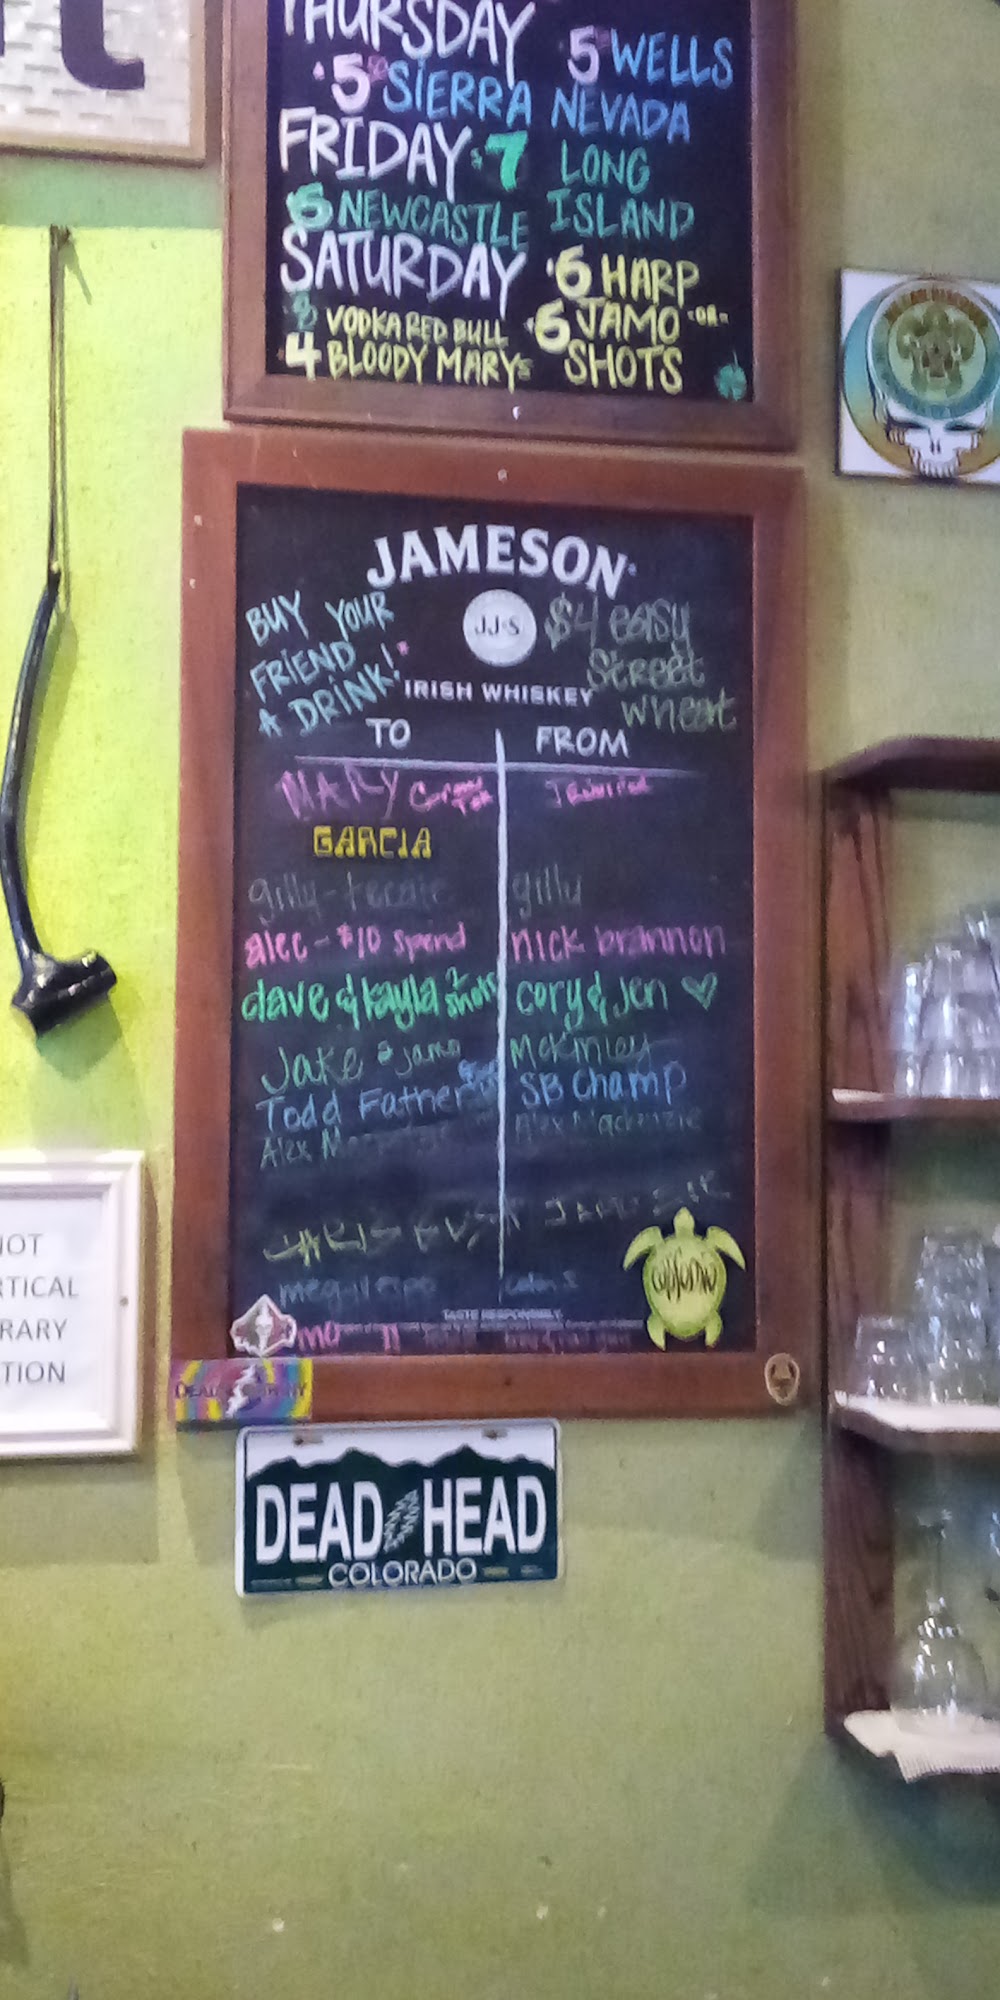 THURSDAY
$5 WELLS
$5 SIERRA NEVADA
FRIDAY $7 LONG ISLAND
5 NEWCASTLE
SATURDAY
$6 HARP
VODKA RED BULL
6 JAMO -OR-
4 BLOODY MARYS
SHOTS
JAMESON
JJ&S
IRISH WHISKEY
BUY YOUR
FRIEND
A DRINK!
$4 easy
Street
wheat
TO FROM
MARY
GARCIA
gilly-tecate gilly
alec - $10 spend nick brannon
dave & kayla 2 shots cory & jen ♡
Jake 2 jamo McKinley
Todd Father SB Champ
Alex Alex Mackenzie
TASTE RESPONSIBLY.
California
NOT
RTICAL
RARY
TION
DEAD HEAD
COLORADO